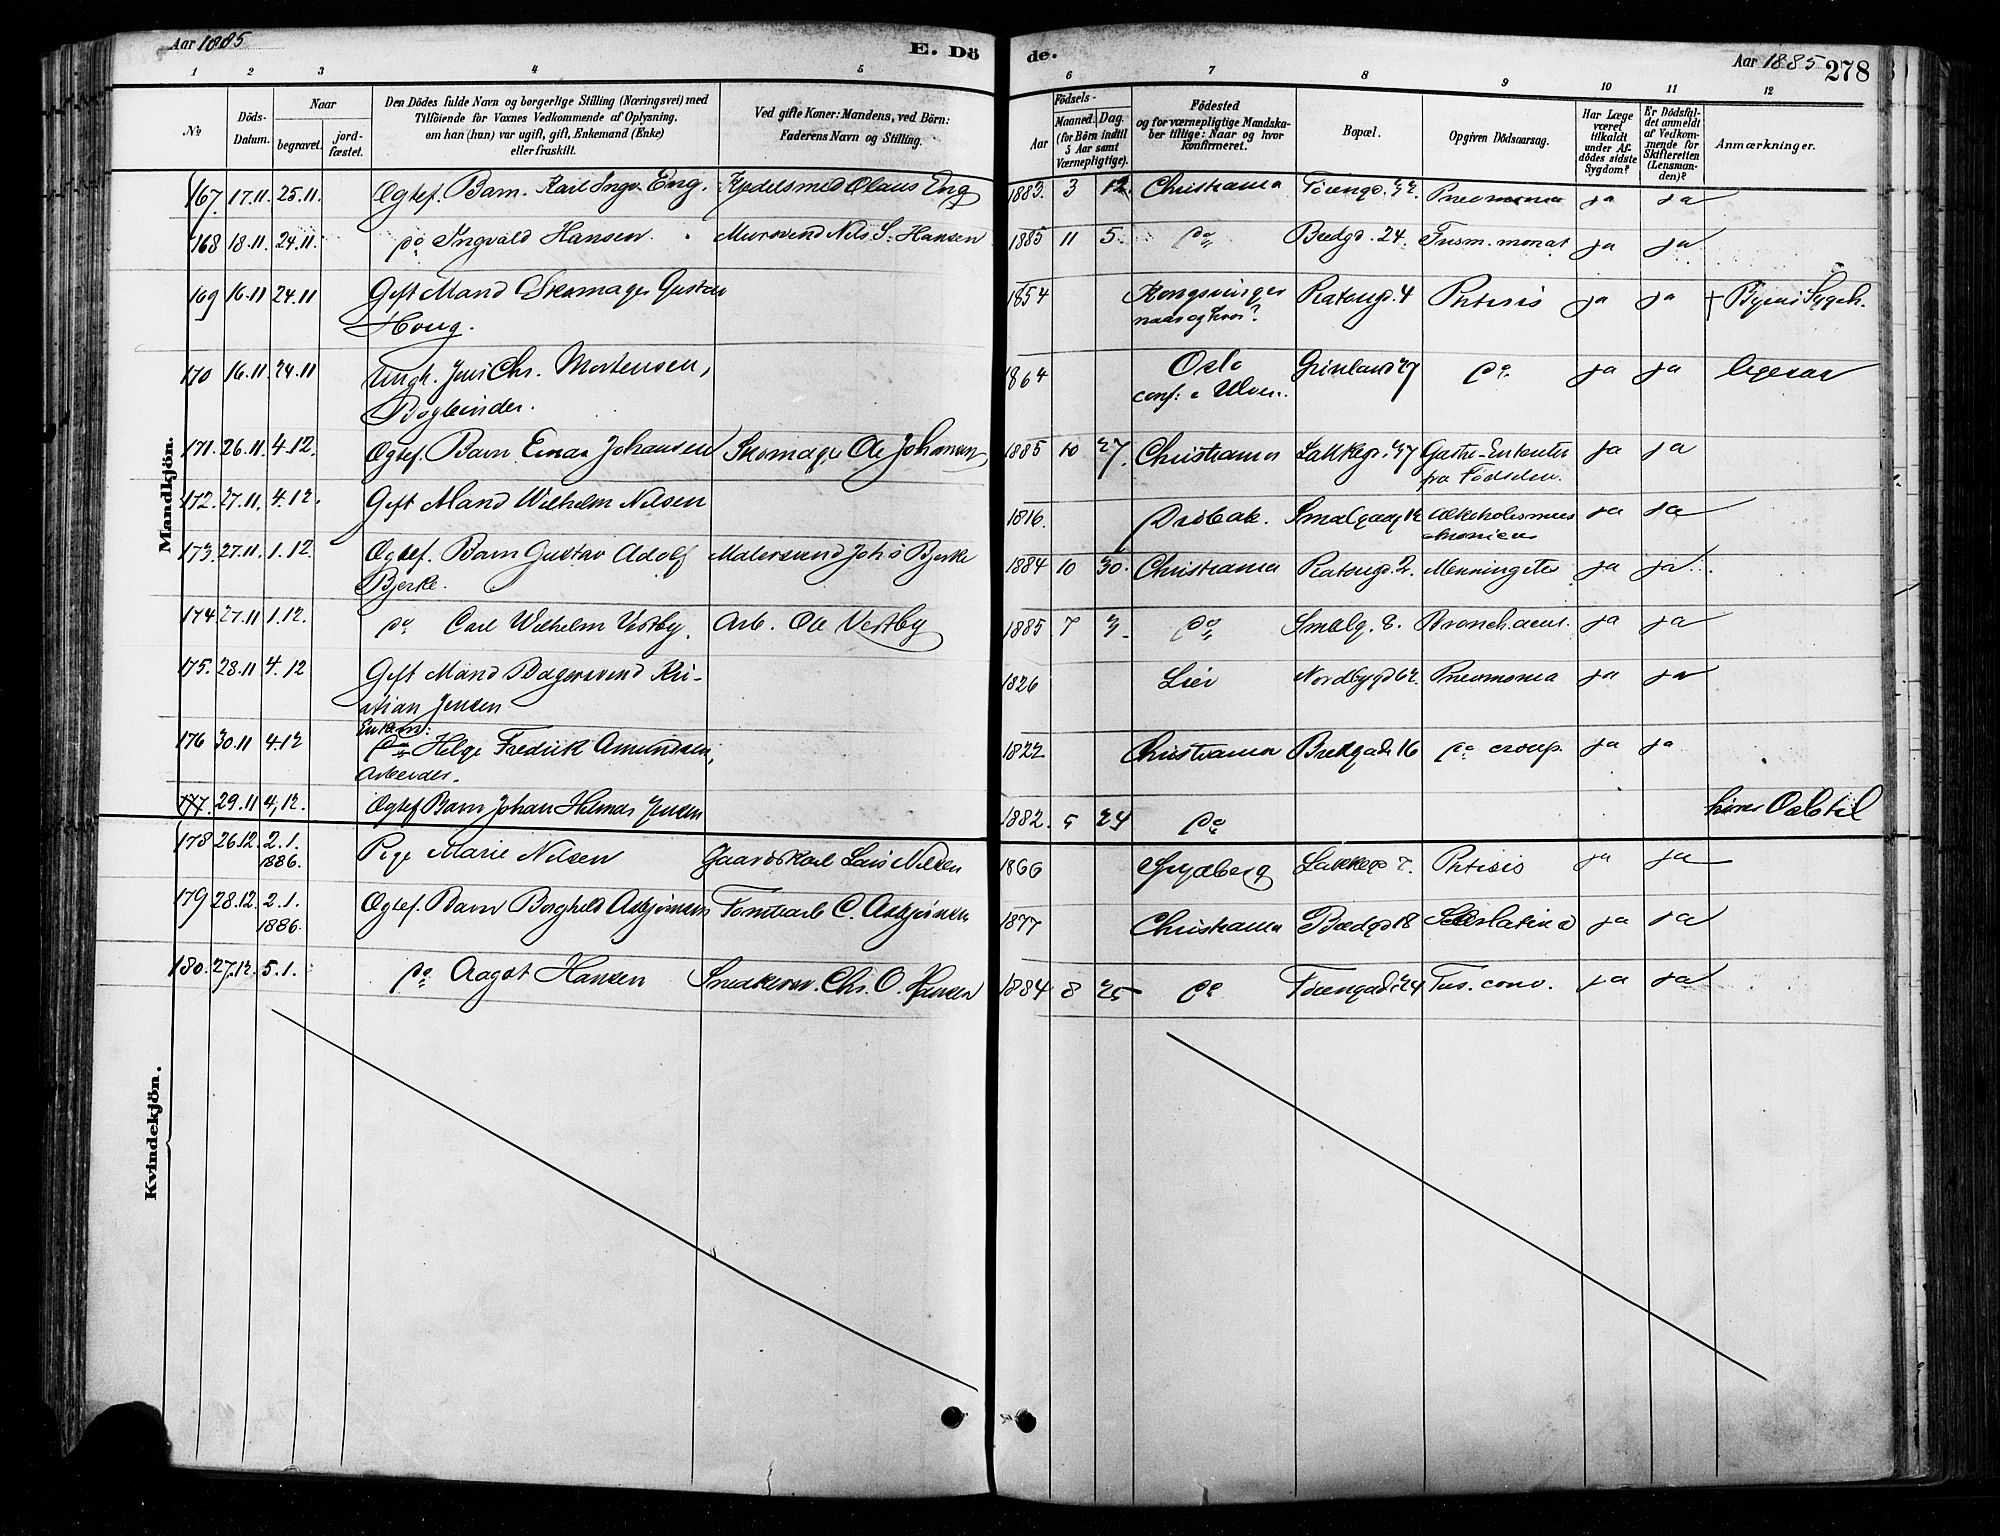 Aar 1885
E. Dö
de.
Aar 1885
278
1 2 3 4 5 6 7 8 9 10 11 12
No
Döds-Datum.
Naar
begravet.
jord-fæstet.
Den Dödes fulde Navn og borgerlige Stilling (Næringsvei) med
Tilföiende for Voxnes Vedkommende af Oplysning,
om han (hun) var ugift, gift, Enkemand (Enke)
eller fraskilt.
Ved gifte Koner: Mandens, ved Börn:
Faderens Navn og Stilling.
Födsels-
Aar
Maaned.
Dag.
(for Börn indtil
5 Aar samt
Værnepligtige).
Födested
og for værnepligtige Mandska-
ber tillige: Naar og hvor
konfirmeret.
Bopæl.
Opgiven Dödsaarsag.
Har Læge
været
tilkaldt
under Af-
dödes sidste
Sygdom?
Er Dödsfal-
det anmeldt
af Vedkom-
mende for
Skifteretten
(Lensman-
den)?
Anmærkninger.
Mandkjön.
167. 17.11. 25.11. Ogtef. Barn. Karl Ingv. Eng. Olaus Eng 1883. 3 12. Christiania Pneumonia ja ja
168 18.11. 24.11. do Ingvald Hansen. Mursvend Nils S. Hansen 1885 11 5. do Bredgd. 24. ja ja
169 16.11 24.11 Gift Mand Skomager Gustav 1854 Kongsvinger 4 Phtisis ja ja + Byens Sygeh.
Houg. naar og hvor?
170 16.11. 24.11 Ungk. Jens Chr. Mortensen, 1864 Oslo Grønland 27 do. ja ja
Bogbinder. conf:
171. 26.11. 4.12. Ogtef. Barn Einar Johansen Skomager Ole Johansen 1885 10 27. Christiania Lakkegd. 37 Gastro-Enterites ja ja
fra Fødselen.
172. 27.11. 4.12. Gift Mand Wilhelm Nilsen 1816. Drøbak. Smalgang 12 Alkoholismus ja ja
173. 27.11. 1.12. Ogtef. Barn Gustav Adolf Malersvend Johs Bjerke 1884 10 30. Christiania 2. Menningites ja ja
Bjerke.
174 27.11 1.12. do Carl Wilhelm Vestby. Arb. Ole Vestby 1885 7 3. do Smalg. 8. Bronch. acut. ja ja
175. 28.11 4.12 Gift Mand Bagersvend Kri- 1826 Lier Nordbygd 62. Pneumonia ja ja
stian Jensen
Enkem:
176 30.11 4.12 do Helge Fredrik Amundsen, 1822 Christiania Bredgade 16 do croup. ja ja
Arbeider.
177. 29.11 4.12. Ogtef Barn Johan Hilmar Jensen 1882. 5 24 do
Kvindekjön.
178 26.12. 2.1. Pige Marie Nilsen Gaardskarl Lars Nilsen 1866 Spydberg Lakkegd 7. Phtisis ja ja
1886.
179 28.12. 2.1. Ogtef. Barn Borghild Asbjørnsen Tomtearb C. Asbjørnsen 1877 Christiania Bredgd 18 Scarlatina ja ja
1886.
180. 27.12. 5.1. do Aagot Hansen Snedkersv. Chr. O. Hansen 1884 8 25 do 24 Tus. conv. ja ja